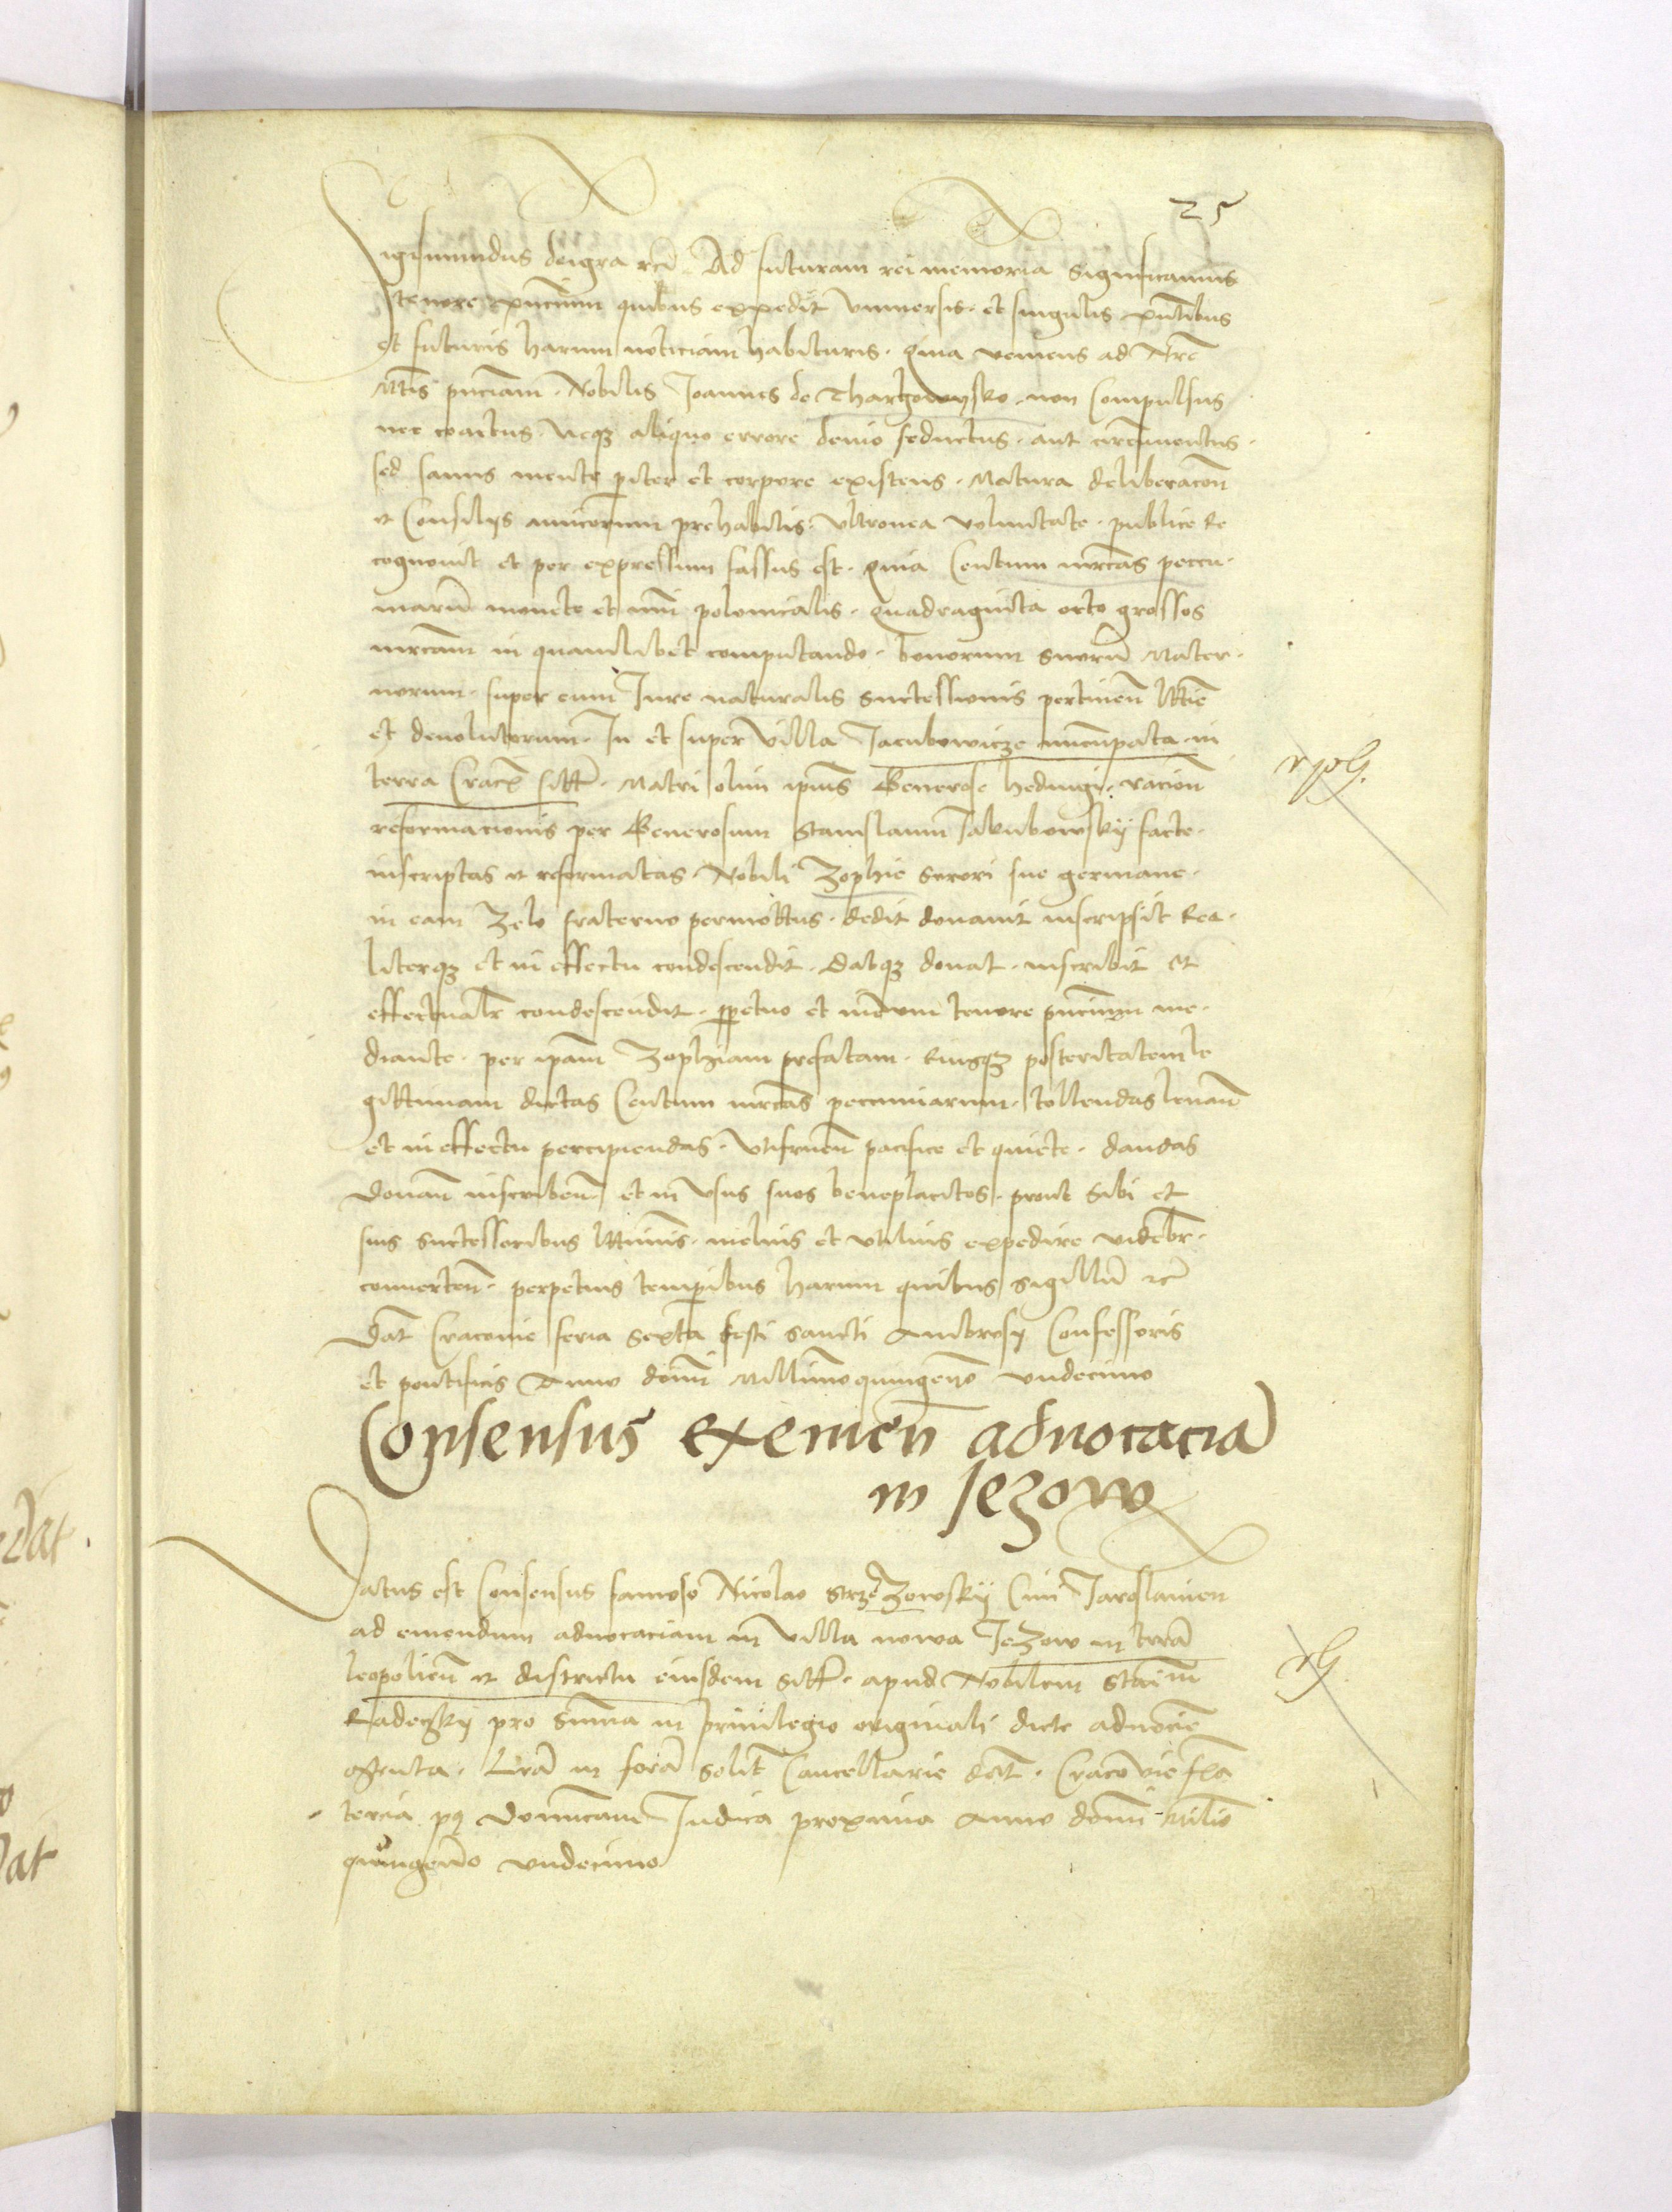 25
Sigismundus dei gra rcͥ Ad futuram rei memoria significamus
tenore pn̄cium quibus expedit vniuersis et singulis pn̄tibus
et futuris harum noticiam habituris. Quia veniens ad Nr̄e
Mtis pn̄ciam. Nobilis Joannes de Thargowysko non compulsus
nec coactus. neqȝ aliquo errore deuio seductus. aut circumuentus.
sed sanus mente pariter et corpore existens. Matura deliberacion̄
et Consilijs amicorum prehabitis. vltronea voluntate. publice re
cognouit et per expressum fassus est. Quia Centum mrcas peccu-
niarū monete et nūi polonicalis. quadraginta octo grossos
mrcam in quamlibet computando. bonorum suorū Mater-
norum. super eum Jure naturalis successionis pertinen̄ l̄tie
et deuolutorum. In et super villa Jacubowicze nuncupata in
terra Cracꝭ sitꝭ. Matri olim ipius Generose Hedwigi. racion̄
reformacionis per Generosum Stanislaum Jakubowskÿ facte.
inscriptas et reformatas. Nobili Zophie sorori sue germane.
in eam zelo fraterno permottus. dedit donauit inscripsit Rea-
literqȝ et in effectu condescendit. datqȝ donat. inscribit et
effectualr̄ condescendit. ꝑpetuo et in euum tenore pn̄cium me-
diante. per ipam Zophiam prefatam. eiusqȝ posteritatem le
gittimam dictas Centum mrcas peccuniarum. tollendas leuan̄
et in effectu percipiendas. vtifruen̄ pacifice et quiete. dandas
donan̄ inscriben̄ et in vsus suos beneplacitos. prout sibi et
suis successoribus l̄timis. melius et vtilius expedire videbr̄.
conuerten̄. perpetuis temporibus harum quibus sigillū rcͥ
Dat̄ Cracouie feria sexta festi sancti Ambrosÿ Confessoris
et pontificis Anno domi Millimo quingen̄o vndecimo
Consensus exemen̄ aduocacia
in Jezow
Datus est Consensus famoso Nicolao Strzezowskÿ Ciui Jaroslauien
ad emendum aduocaciam in villa nowa Jezow in terra
leopolien̄ et districtu eiusdem sitꝭ. apud Nobilem Stanm
Radeczkÿ pro summa in priuilegio originali dicte aduocie
Lr̄a in fora solit Cancellarie dat̄. Cracouie fra
tercia pꝰ Dominicam Judica proxima Anno domi Milio
quingen̄o vndecimo